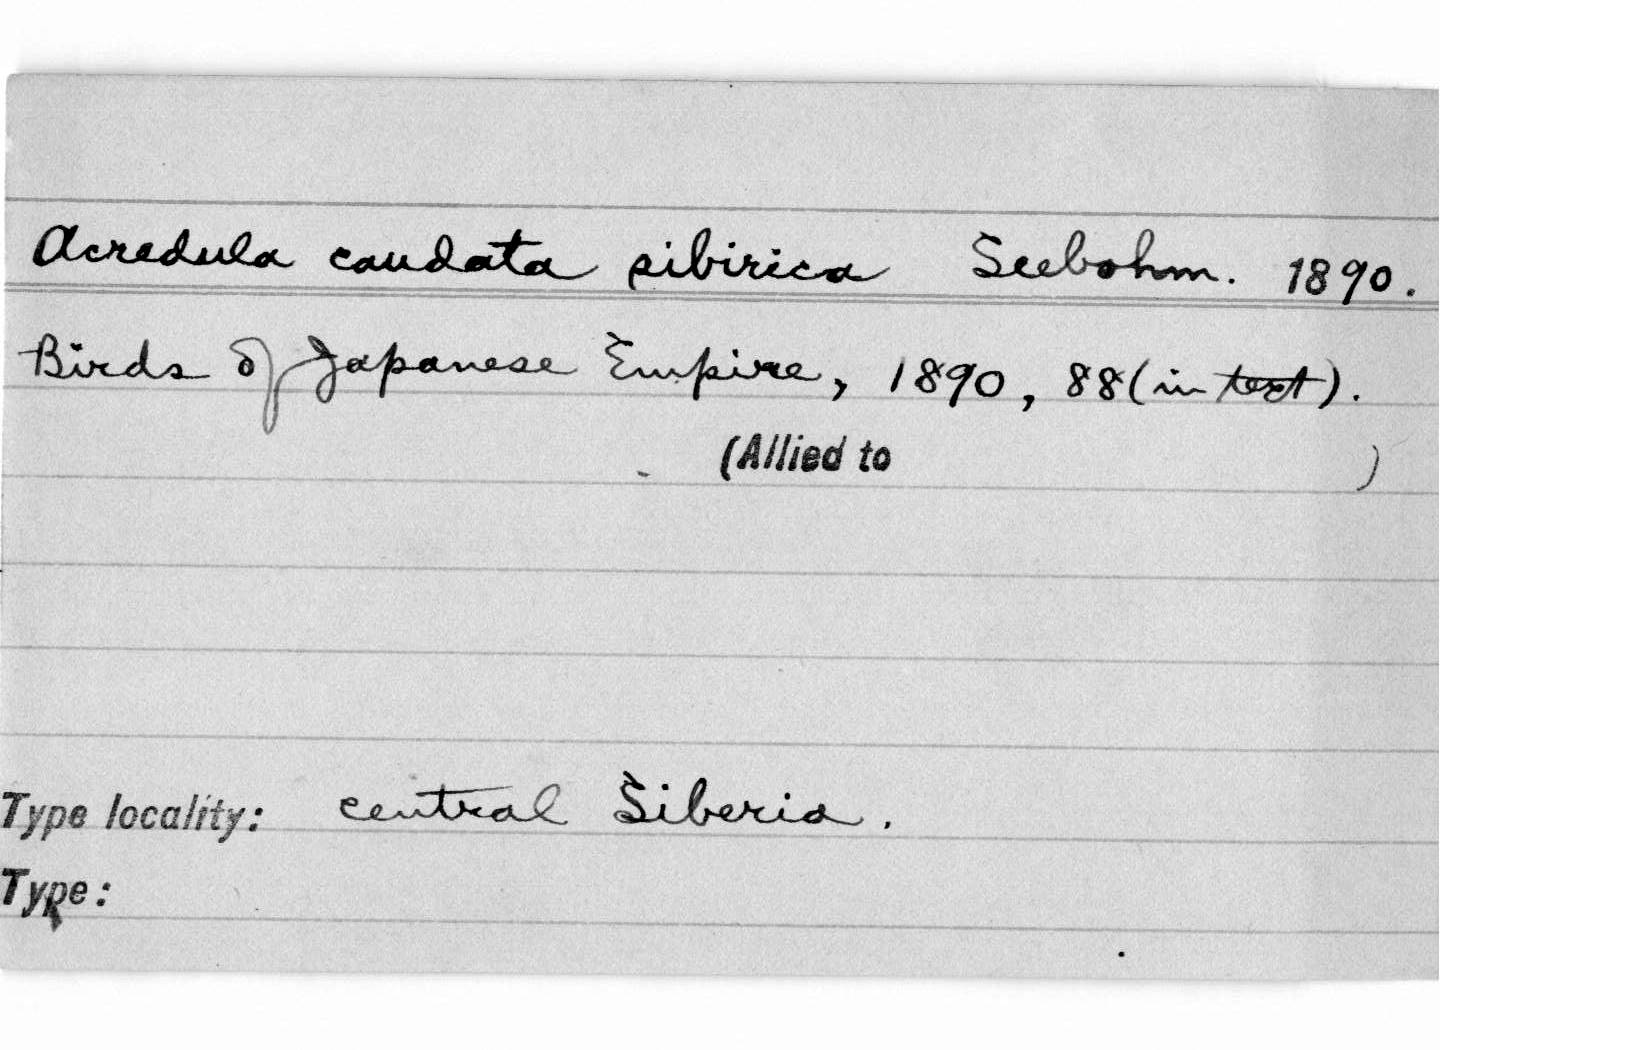 Acredula caudata sibirica Seebohm. 1890.
Birds of Japanese Empire, 1890, 88 (in text).
(Allied to )
Type locality: central Siberia.
Type: